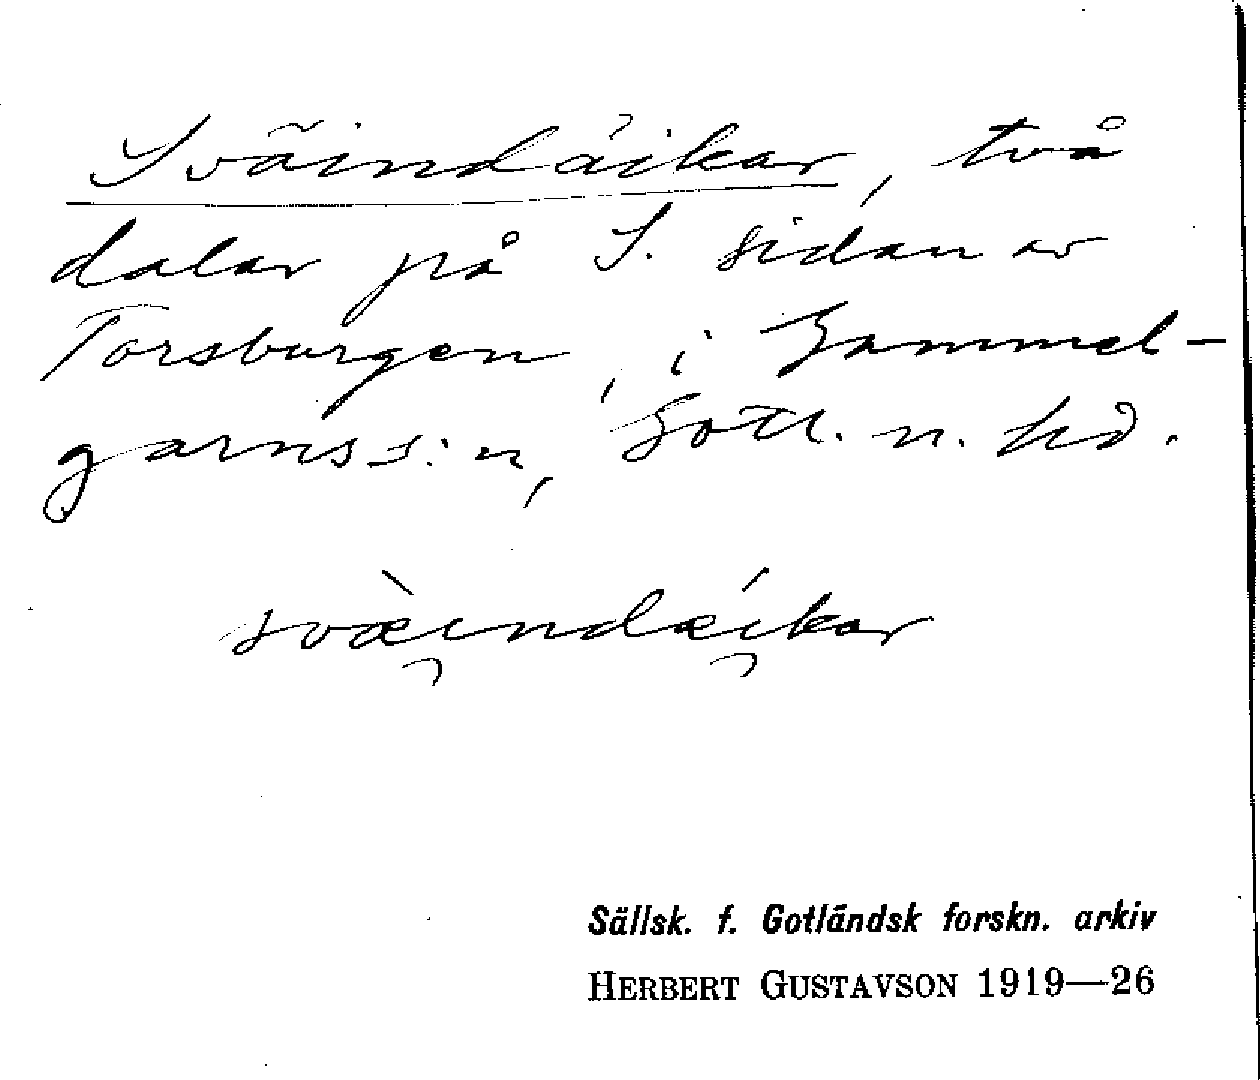 Sväindäikar, två
dalar på S. sidan av
Torsburgen, i Gammel-
garns s:n, Gotl. n. hd.
svæ̀indǽikar
Sällsk. f. Gotländsk forskn. arkiv
HERBERT GUSTAVSON 1919—26